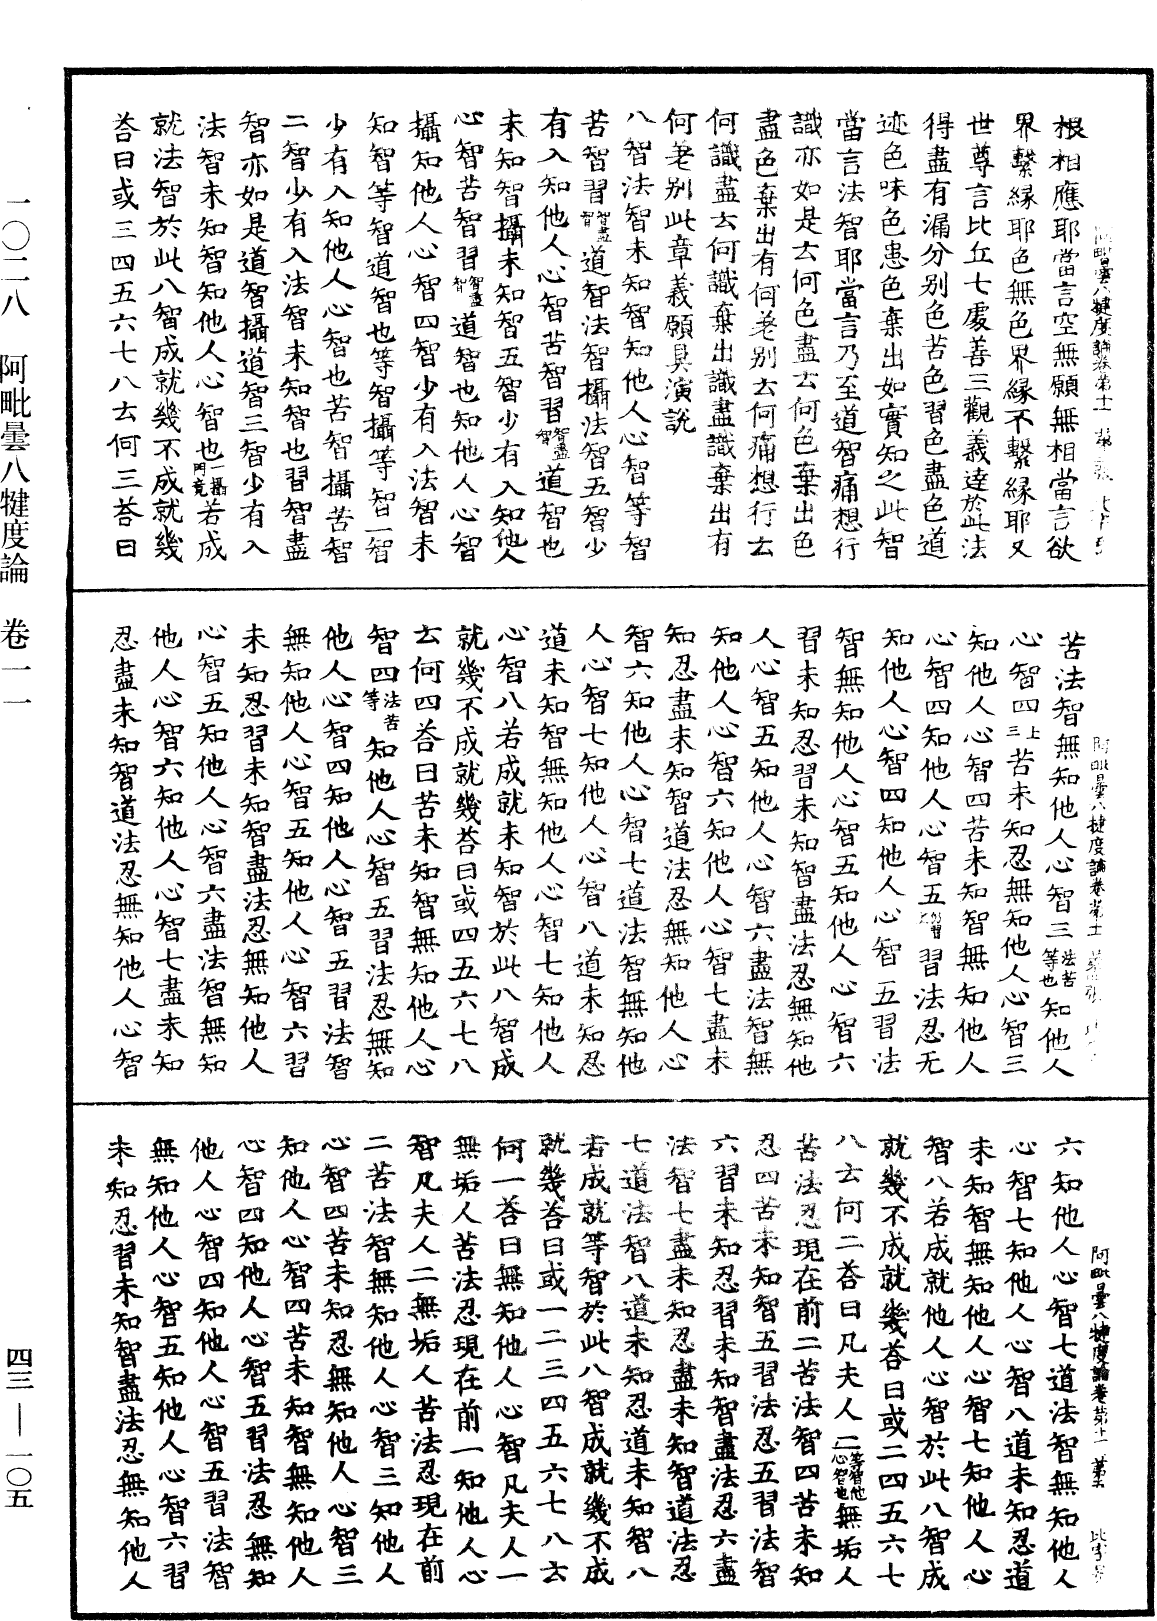 根相應耶當言空無願無相當言欲
界繫緣耶色無色界緣不繫緣耶又
世尊言比丘七處善三觀義達於此法
得盡有漏分別色苦色習色盡色道
迹色味色患色棄出如實知之此智
當言法智耶當言乃至道智痛想行
識亦如是云何色盡云何色棄出色
盡色棄出有何差別云何痛想行云
何識盡云何識棄出識盡識棄出有
何差別此章義願具演說
八智法智未知智知他人心智等智
苦智習智盡智道智法智攝法智五智少
有入知他人心智苦智習智盡智道智也
未知智攝未知智五智少有入知他人
心智苦智習智盡智道智也知他人心智
攝知他人心智四智少有入法智未
知智等智道智也等智攝等智一智
少有入知他人心智也苦智攝苦智
二智少有入法智未知智也習智盡
智亦如是道智攝道智三智少有入
法智未知智知他人心智也一攝門竟若成
就法智於此八智成就幾不成就幾
荅曰或三四五六七八云何三荅曰
苦法智無知他人心智三法苦等也知他人
心智四上三苦未知忍無知他人心智三
知他人心智四苦未知智無知他人
心智四知他人心智五習法忍无
知他人心智四知他人心智五習法
智無知他人心智五知他人心智六
習未知忍習未知智盡法忍無知他
人心智五知他人心智六盡法智無
知他人心智六知他人心智七盡未
知忍盡未知智道法忍無知他人心
智六知他人心智七道法智無知他
人心智七知他人心智八道未知忍
道未知智無知他人心智七知他人
心智八若成就未知智於此八智成
就幾不成就幾荅曰或四五六七八
云何四荅曰苦未知智無知他人心
智四法苦等知他人心智五習法忍無知
他人心智四知他人心智五習法智
無知他人心智五知他人心智六習
未知忍習未知智盡法忍無知他人
心智五知他人心智六盡法智無知
他人心智六知他人心智七盡未知
忍盡未知智道法忍無知他人心智
六知他人心智七道法智無知他人
心智七知他人心智八道未知忍道
未知智無知他人心智七知他人心
智八若成就他人心智於此八智成
就幾不成就幾荅曰或二四五六七
八云何二荅曰凡夫人二等智他心智也無垢人
苦法忍現在前二苦法智四苦未知
忍四苦未知智五習法忍五習法智
六習未知忍習未知智盡法忍六盡
法智七盡未知忍盡未知智道法忍
七道法智八道未知忍道未知智八
若成就等智於此八智成就幾不成
就幾荅曰或一二三四五六七八云
何一荅曰無知他人心智凡夫人一
無垢人苦法忍現在前一知他人心
智凡夫人二無垢人苦法忍現在前
二苦法智無知他人心智三知他人
心智四苦未知忍無知他人心智三
知他人心智四苦未知智無知他人
心智四知他人心智五習法忍無知
他人心智四知他人心智五習法智
無知他人心智五知他人心智六習
未知忍習未知智盡法忍無知他人
一〇二八 阿毗曇八犍度論 卷一一
四三—一〇五